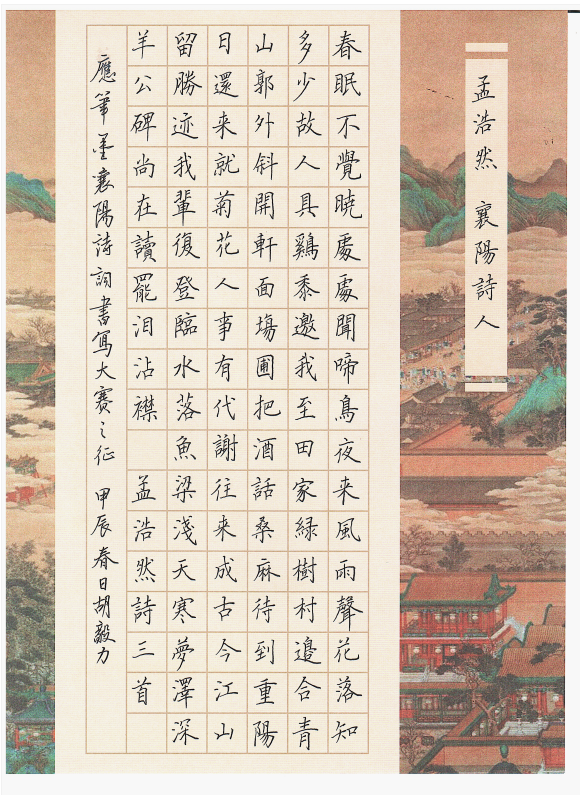 孟浩然 襄陽詩人
春眠不覺曉處處聞啼鳥夜来風雨聲花落知
多少故人具鷄黍邀我至田家緑樹村邊合青
山郭外斜開軒面場圃把酒話桑麻待到重陽
日還来就菊花人事有代謝往来成古今江山
留勝迹我輩復登臨水落魚梁淺天寒夢澤深
羊公碑尚在讀罷泪沾襟 孟浩然詩三首
應筆墨襄陽詩詞書寫大賽之征 甲辰春日胡毅力